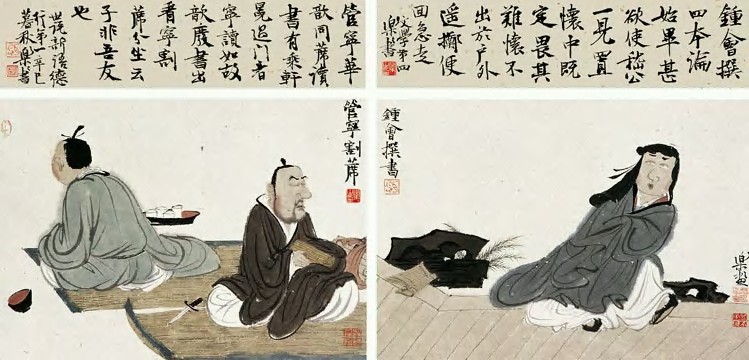 鍾會撰
四本論
始畢甚
欲使嵇公
一見置
懷中既
定畏其
難懷不
出於户外
遥擲便
回急走
文學第四
樂書
鍾會撰書
樂畫
管寧華
歆同蓆讀
書有乘軒
冕過門者
寧讀如故
歆廢書出
看寧割
蓆分坐云
子非吾友
也
世説新語德
行第一辛巳
暮秋樂書
管寧割蓆